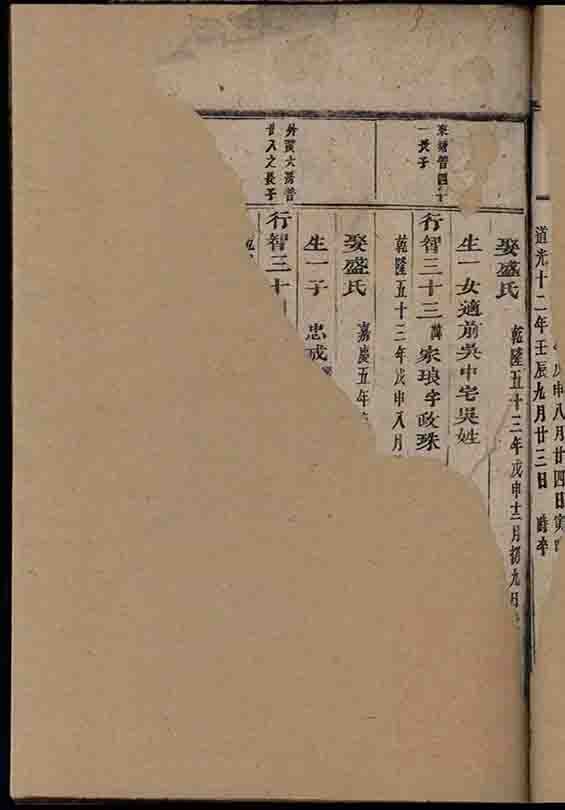 戊申八月廿四日寅
道光十二年壬辰九月廿三日 時卒
娶盛氏 乾隆五十三年戊申十二月初九日
生一女適前吳中宅吳姓
一長子
行智三十三 宗琅字政珠
乾隆五十三年戊申八月
娶盛氏 嘉慶五年
生一子 忠成
廿八之長子
行智三十